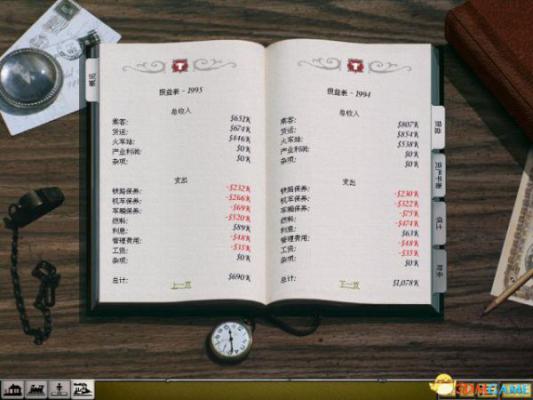 概览
损益表 - 1995
总收入
乘客: $652'K
货运: $674'K
火车站: $446'K
产业利润: $0'K
杂项: $0'K
支出
铁路保养: -$232'K
机车保养: -$266'K
车厢保养: -$69'K
燃料: -$520'K
利息: $89'K
管理费用: -$48'K
工资: -$35'K
杂项: $0'K
总计: $690'K
上一页
损益表 - 1994
总收入
乘客: $807'K
货运: $854'K
火车站: $538'K
产业利润: $0'K
杂项: $0'K
支出
铁路保养: -$230'K
机车保养: -$322'K
车厢保养: -$75'K
燃料: -$474'K
利息: $63'K
管理费用: -$48'K
工资: -$35'K
杂项: $0'K
总计: $1,078'K
下一页
损益
3DMGAME